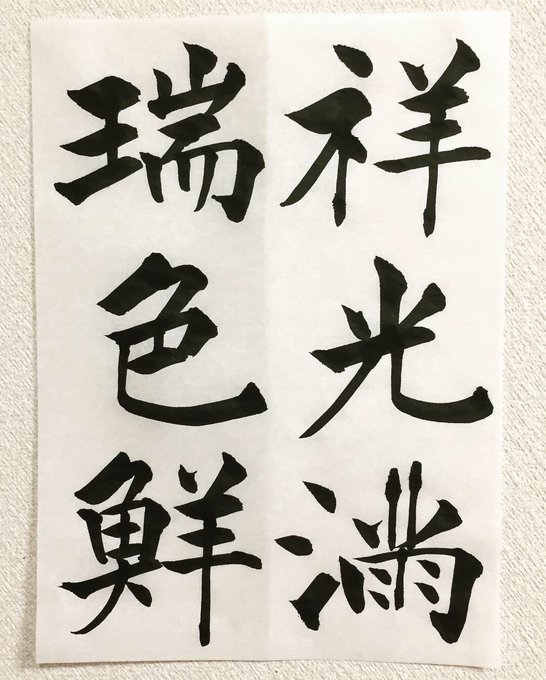 祥光満
瑞色鮮